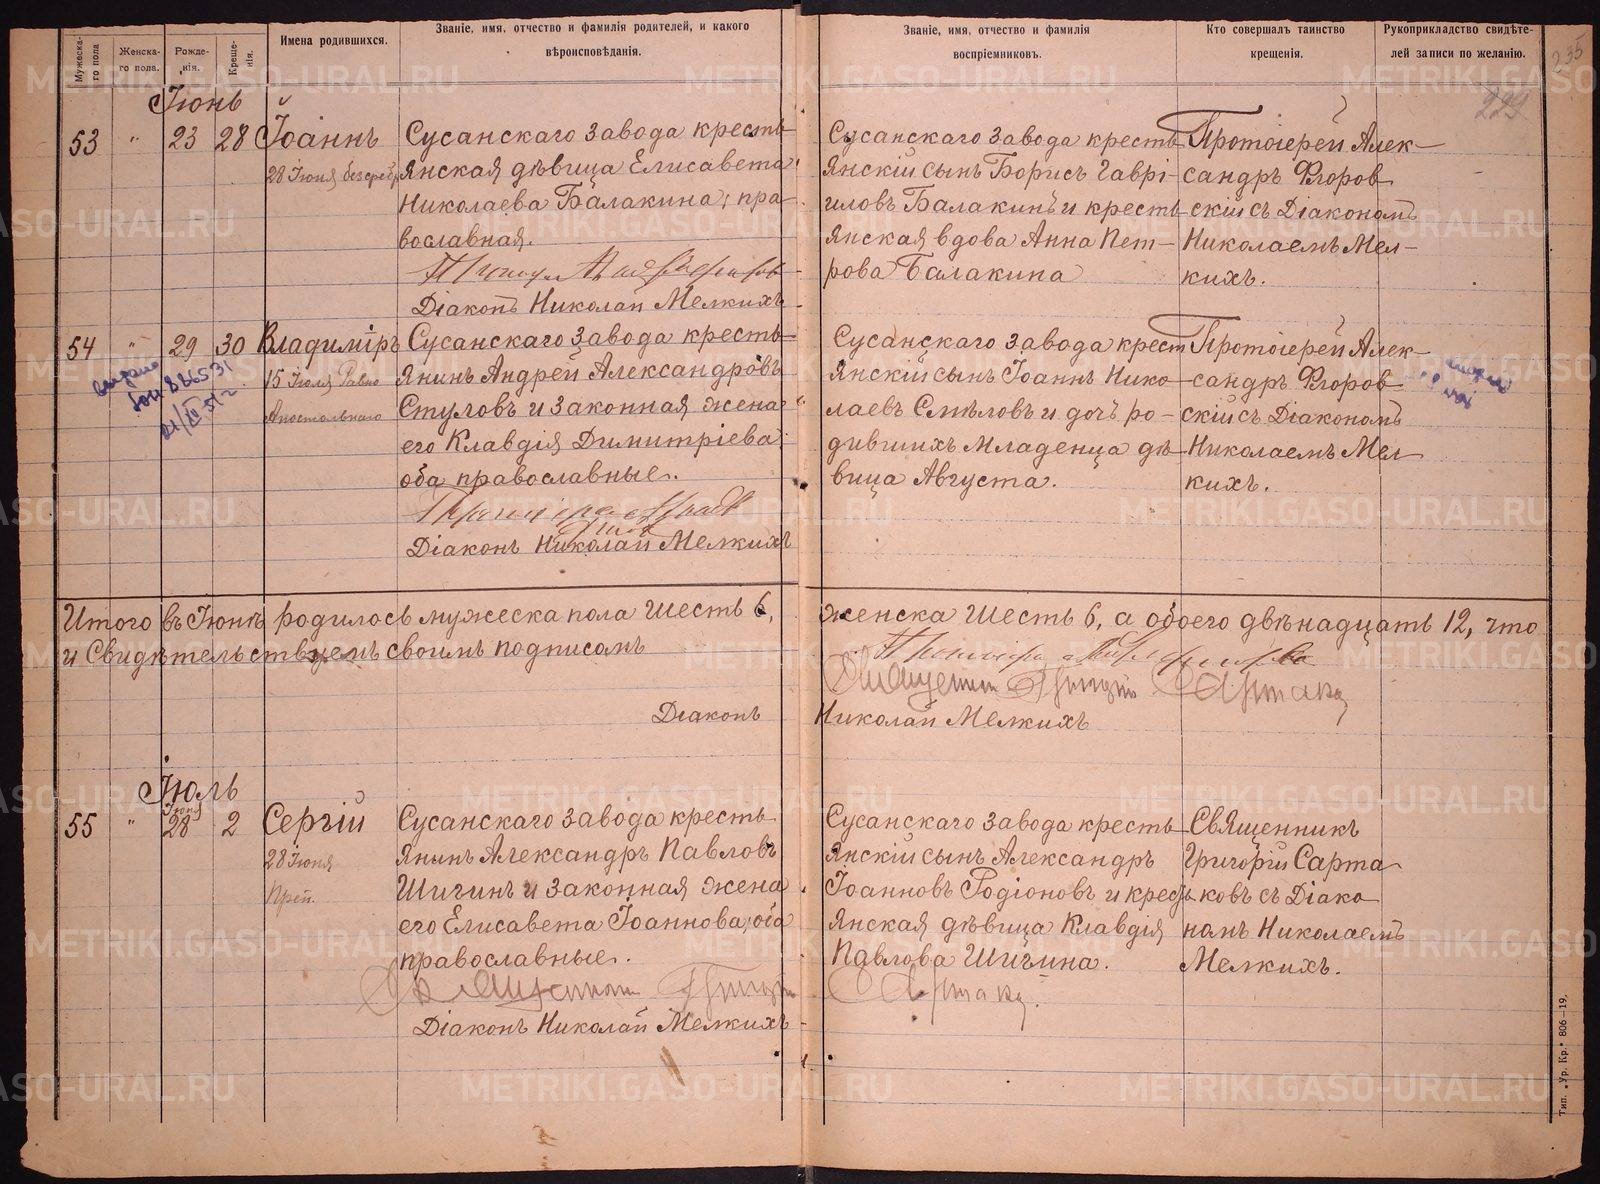 Мужеска-го пола
Женска-го пола.
Рожде-нія.
Креще-нія.
Имена родившихся.
Званіе, имя, отчество и фамилія родителей, и какого
вѣроисповѣданія.
Званіе, имя, отчество и фамилія
воспріемниковъ.
Кто совершалъ таинство
крещенія.
Рукоприкладство свидѣте-
лей записи по желанію.
235
229
Іюнь
53 " 23 28 Іоаннъ
28 Іюня безсребр
Сусанскаго завода кресть-
янская дѣвица Елисавета
Николаева Балакина, пра-
вославная.
Діаконъ Николай Мелкихъ
Сусанскаго завода кресть-
янскій сынъ Борисъ Гаврі-
иловъ Балакинъ и кресть-
янская вдова Анна Пет-
рова Балакина
Протоіерей Алек-
сандръ Флоров-
скій съ Діакономъ
Николаемъ Мел-
кихъ.
54 " 29 30 Владиміръ
15 Іюля Равно
Апостольнаго
Сусанскаго завода кресть-
янинъ Андрей Александровъ
Стуловъ и законная жена
его Клавдія Димитріева
оба православные.
Діаконъ Николай Мелкихъ
Сусанскаго завода крест
янскій сынъ Іоаннъ Нико-
лаевъ Смѣловъ и дочь ро-
дившихъ младенца дѣ-
вица Августа.
Протоіерей Алек-
сандръ Флоров-
скій съ Діакономъ
Николаемъ Мел-
кихъ.
Итого въ Іюнѣ родилось мужеска пола шесть 6, женска шесть 6, а обоего двѣнадцать 12, что
и свидѣтельствуемъ своимъ подписомъ
Діаконъ Николай Мелкихъ
Іюль
55 " Іюня 28 2 Сергій
28 Іюня
Преп.
Сусанскаго завода кресть-
янинъ Александръ Павловъ
Шигинъ и законная жена
его Елисавета Іоаннова, оба
православные.
Діаконъ Николай Мелкихъ
Сусанскаго завода кресть-
янскій сынъ Александръ
Іоанновъ Родіоновъ и кресть-
янская дѣвица Клавдія
Павлова Шигина.
Священникъ
Григорій Сарта
ковъ съ Діако
номъ Николаемъ
Мелкихъ.
Тип. „Ур. Кр.“ 806—19.
METRIKI.GASO-URAL.RU